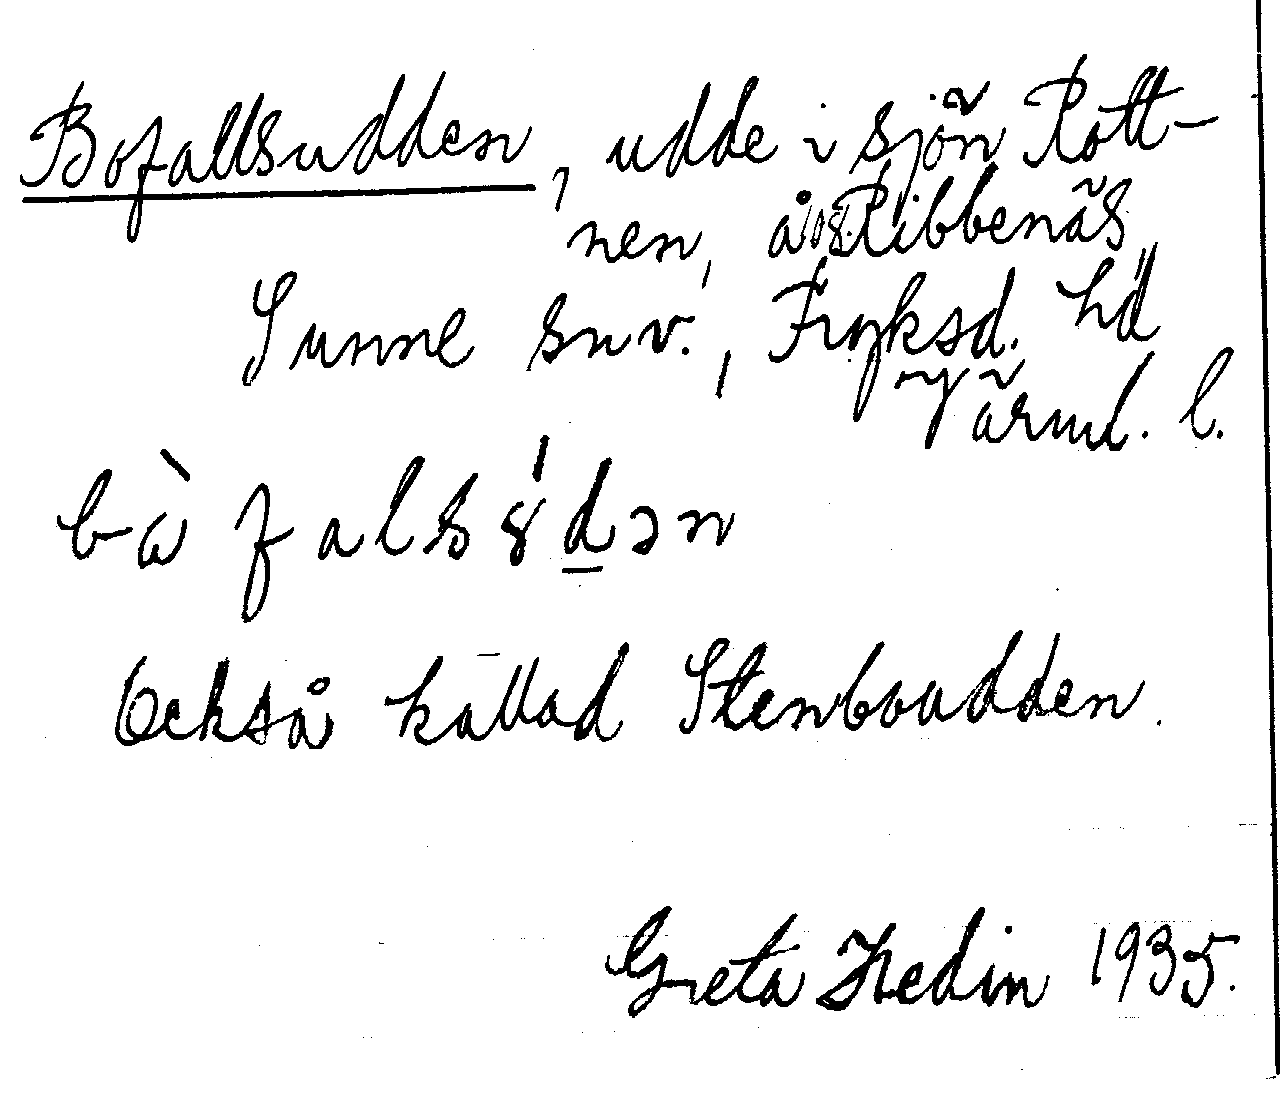 Bofallsudden, udde i sjön Rott-
nen, å Ribbenäs
Sunne snv., Fryksd. hd
Värml. l.
bàfals8́dən
Också kallad Stenboudden.
Greta Hedin 1935.